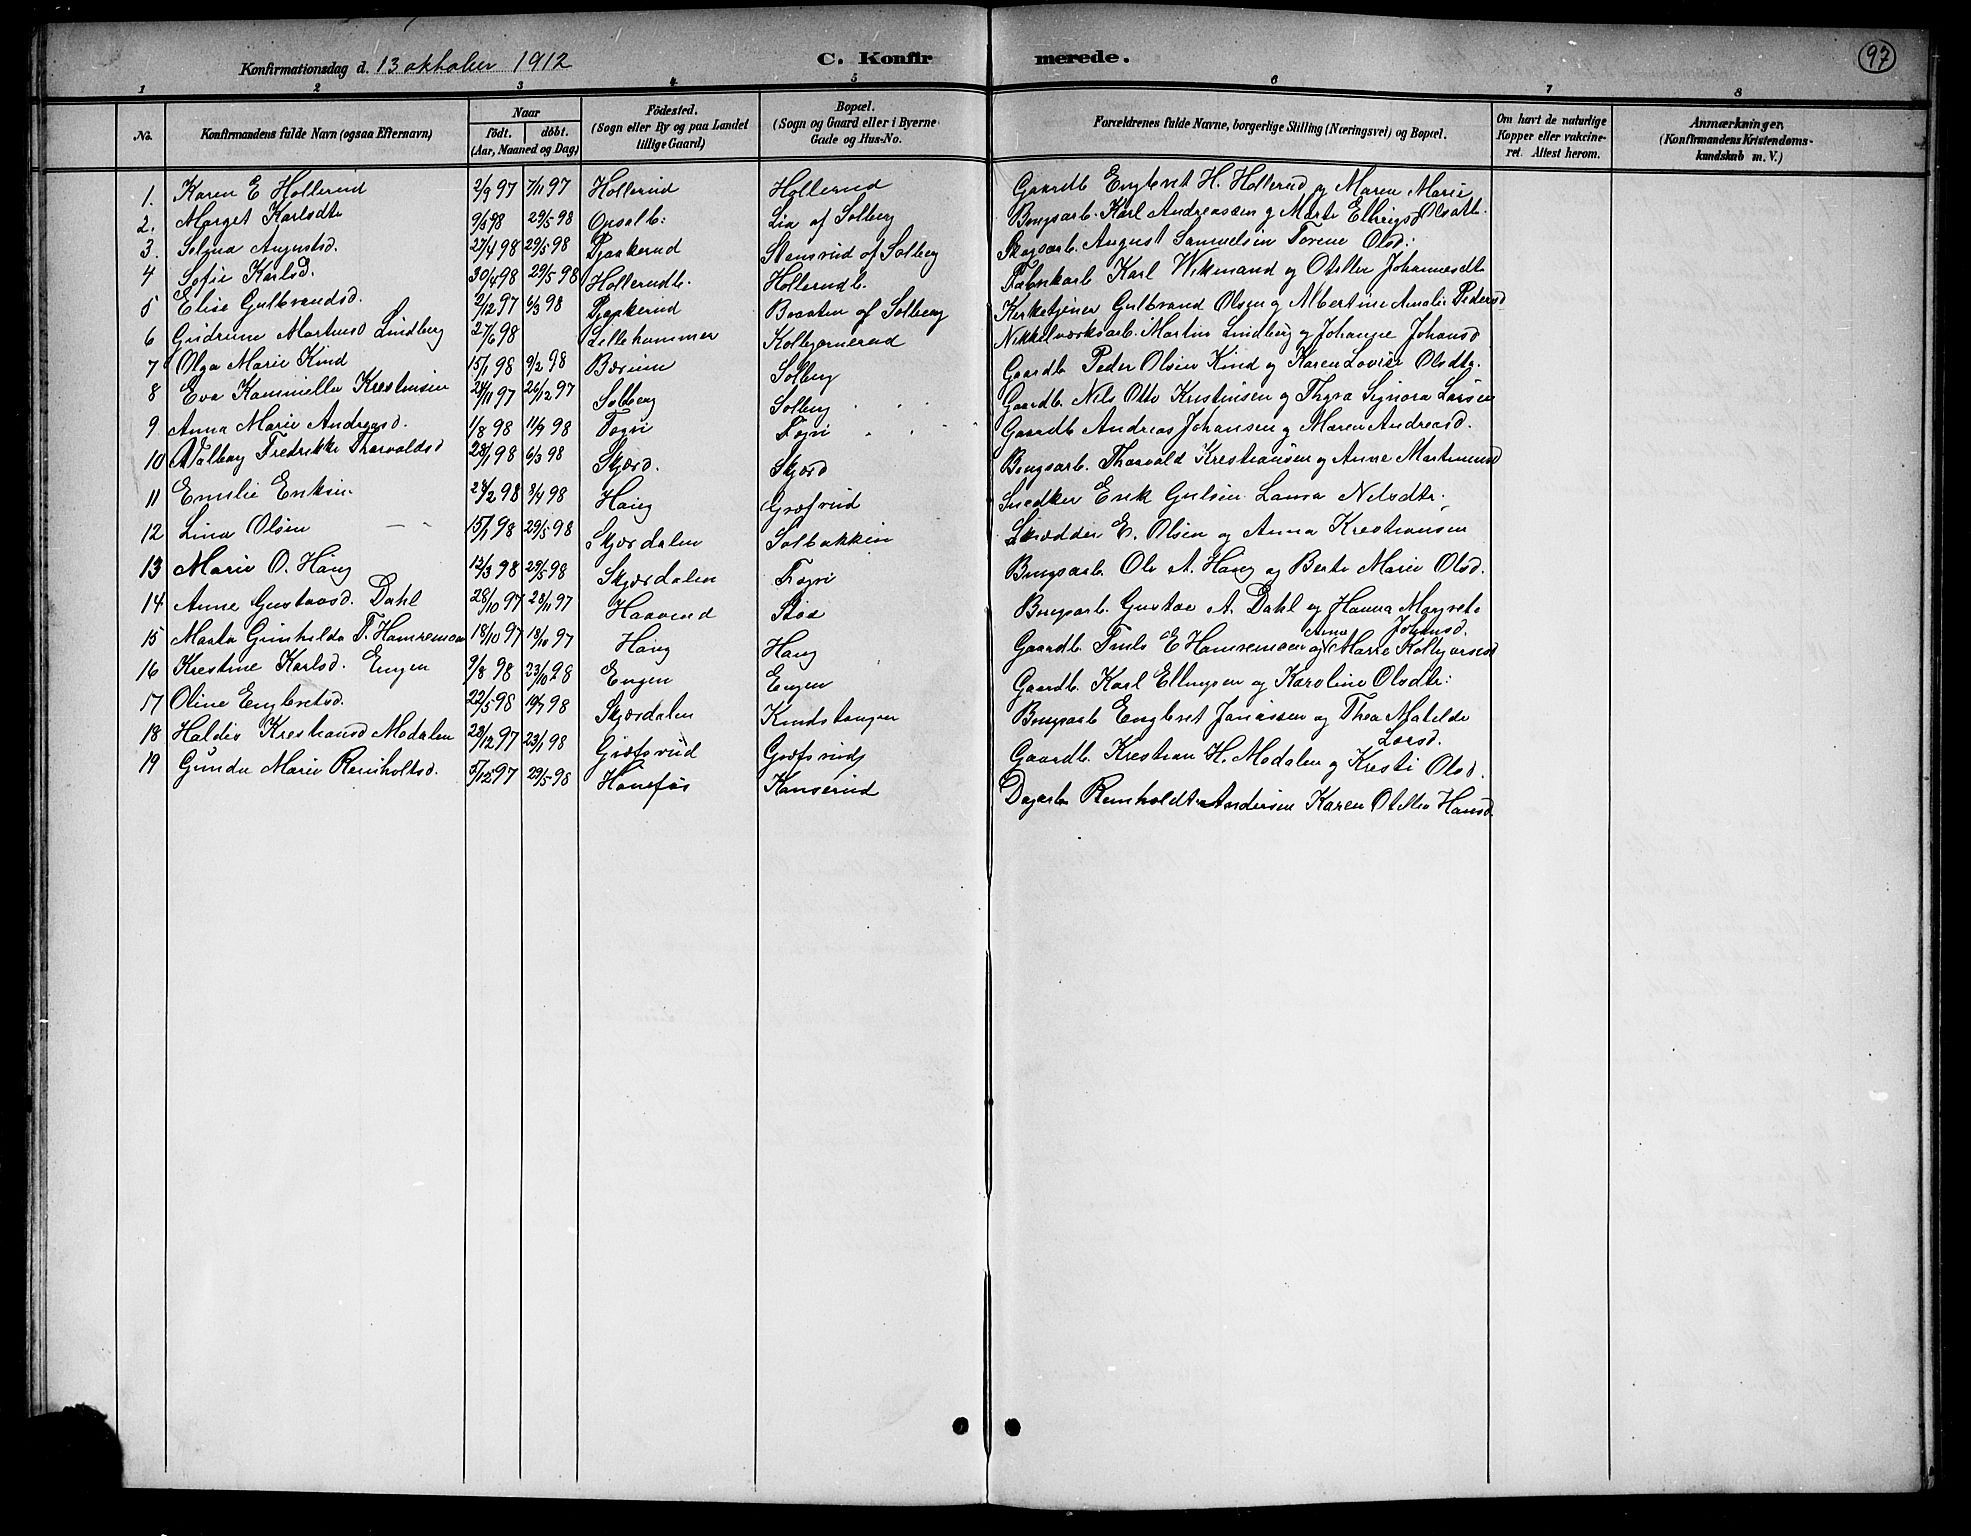 Konfirmationsdag d. 13 oktober 1912 C. Konfirmerede. 97
1 2 3 4 5 6 7 8
No. Konfirmandens fulde Navn (ogsaa Efternavn) Naar födt. döbt. (Aar, Maaned og Dag) Födested. (Sogn eller By og paa Landet tillige Gaard) Bopæl. (Sogn og Gaard eller i Byerne Gade og Hus-No. Forældrenes fulde Navne, borgerlige Stilling (Næringsvei) og Bopæl. Om havt de naturlige Kopper eller vakcineret. Attest herom. Anmærkninger. (Konfirmandens Kristendomskundskab m. V.)
1. Karen E Hollerud 2/9 97 7/11 97 Hollerud Hollerud Gaardb Engebret H. Hollerud og Maren Marie
2. Marget Karlsdtr 9/3 98 29/5 98 Opsalb: Lia af Solberg Brugsarb. Karl Andreassen g Marte Olsdtr.
3. Selma Augustsd. 27/4 98 29/5 98 Tjaakerud Stensrud af Solberg Skogsarb. August Samuelsen Torene Olsd:
4 Sofie Karlsd. 30/4 98 29/5 98 Hollerudb. Hollerudb. Fabrikarb Karl Wikmand og Otellie Johannesdtr
5 Elise Gulbrandsd. 2/12 97 6/3 98 Tjaakerud Braaten af Solberg Kirketjener Gulbrand Olsen g Albertine Amalie Pedersd
6 Gudrun Martins Lindberg 27/6 98 Lillehammer Kolbjørnerud Nikkelværksarb. Martin Lindberg og Johanne Johansd
7 Olga Marie Kind 15/1 98 9/2 98 Bærum Solberg Gaardb Peder Olsen Kind og Karen Lovise Olsdtr.
8 Eva Kammilla Kristensen 24/11 97 26/12 97 Solberg Solberg Gaardb. Nils Otto Kristensen og Thyra Signora Larsen
9 Anna Marie Andreasd. 1/8 98 11/9 98 Fagri Fagri Gaardb Andreas Johansen g Maren Andreasd.
10 Valborg Fredrikke Thorvaldsd 28/1 98 6/3 98 Skjærd. Skjærd Brugsarb. Thorvald Kristiansen og Anne Martinusd
11 Emilie Eriksen 24/2 98 3/4 98 Haug Græfsrud Snedker Erik Gulsen Laura Nilsdtr.
12 Lina Olsen 15/1 98 29/5 98 Skjærdalen Solbakken Skrædder E. Olsen og Anna Kristiansen
13 Marie O. Haug 12/3 98 29/5 98 Skjærdalen Fagri Brugsarb. Ole A. Haug og Berte Marie Olsd.
14 Anne Gustavsd. Dahl 28/10 97 28/11 97 Haavend Støa Brugsarb. Gustav A. Dahl og Hanna Margrete Johansd.
15 Marta Gunhilda T. Hamremoen 18/10 97 18/10 97 Haug Haug Gaardb. Truls E Hamremoen og Anna Marie Kolbjørnsd
16 Kristine Karlsd. Engen 9/8 98 23/10 98 Engen Engen Gaardb. Karl Ellingsen og Karoline Olsdtr:
17 Oline Engebretsd. 22/5 98 10/7 98 Skjærdalen Kindstangen Brugsarb Engebret Jonassen og Thea Matilde Larsd.
18 Haldis Kristiansd Modalen 28/12 97 23/1 98 Græfsrud Græfsrud Gaardb. Kristian H. Modalen g Kristi Olsd.
19 Gunda Marie Reinholtsd. 5/12 97 29/5 98 Hønefos Hanserud Dagarb Reinholdt Andersen Karen Otellie Hansd.